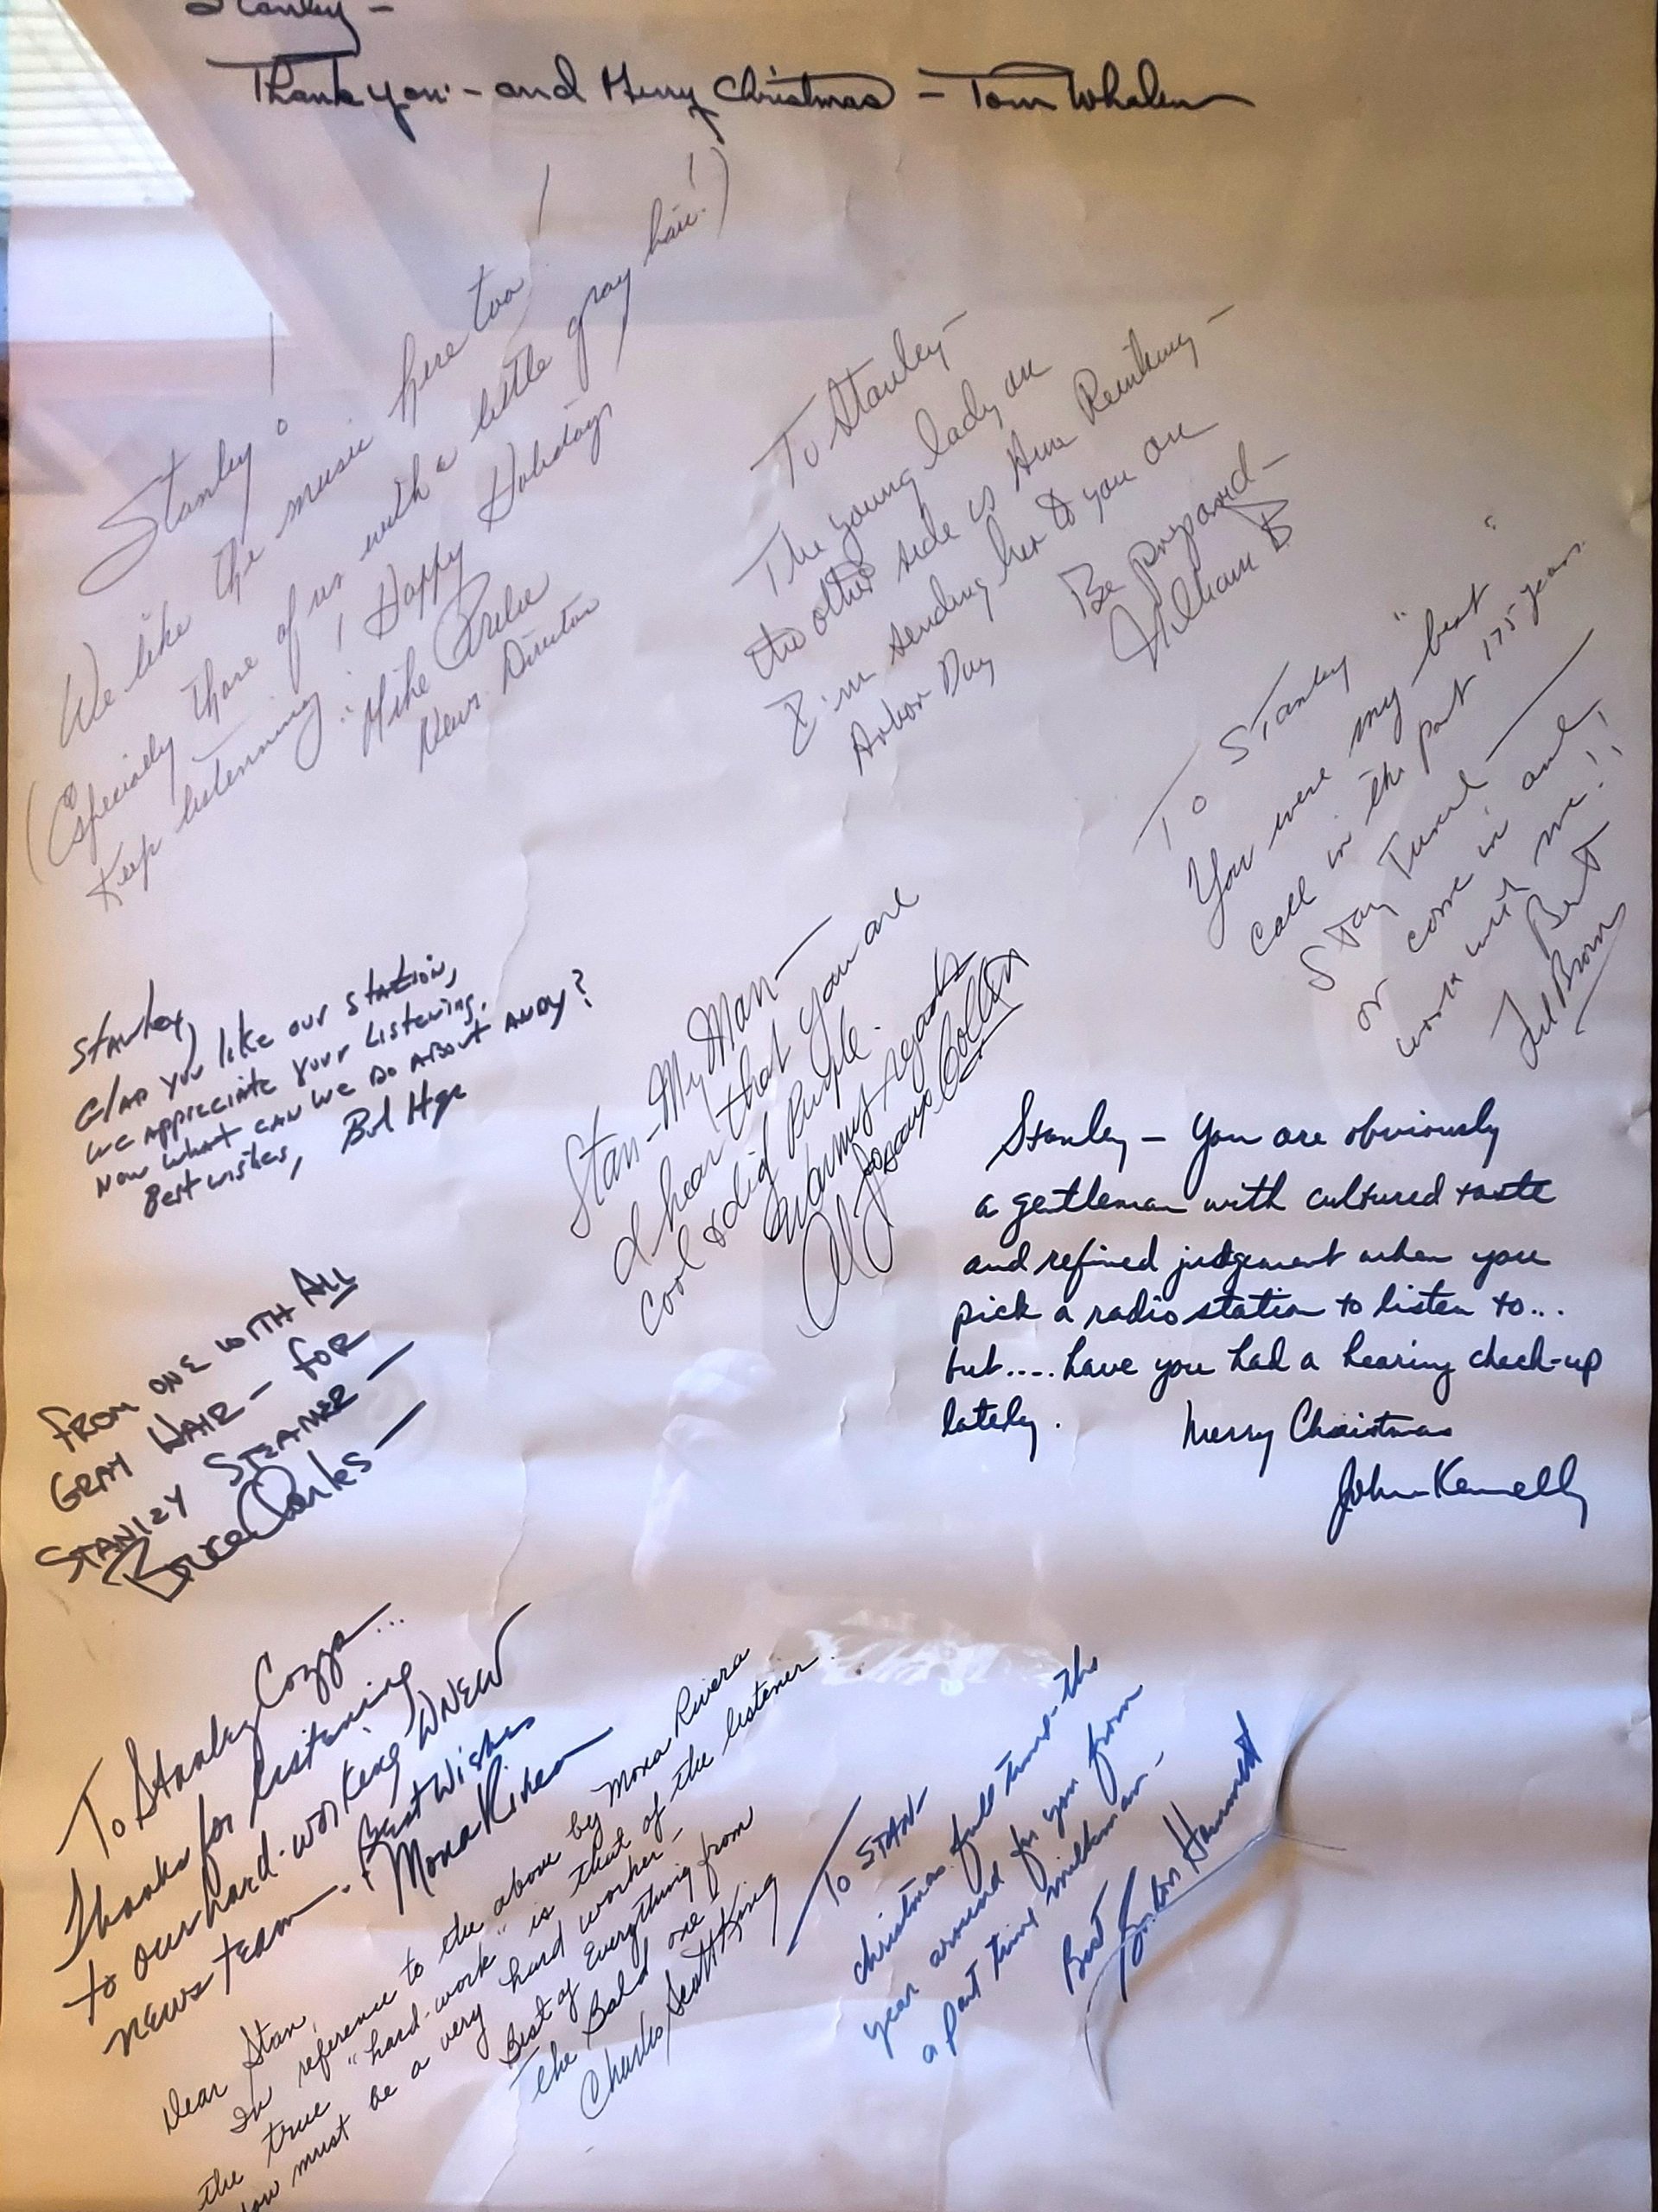 Stanley -
Thank you - and Merry Christmas - Tom Whalen
Stanley!
We like the music here too!
(Especially those of us with a little gray hair!)
Keep listenning! Happy Holidays
Mike
News Director
To Stanley -
The young lady on
the other side is
I'm sending her to you on
Arbor Day Be prepared -
William B
To Stanley
You were my "best"
call in the past 175 years.
Stay Tuned -
or come in and
work with me!!
Best
Ted Brown
Stanley,
Glad you like our station,
we appreciate your listening.
Now what can we do about Andy?
Best wishes,
Stan - My Man -
I hear that you are
cool & dig Purple.
Warmest regards
Al "Jazzbo" Collins
Stanley - You are obviously
a gentleman with cultured taste
and refined judgement when you
pick a radio station to listen to...
but.... have you had a hearing check-up
lately. Merry Christmas
John Kennelly
FROM ONE WITH ALL
GRAY HAIR - FOR
STANLEY STEAMER -
Bruce Charles -
To Stanley Cozza...
Thanks for listening
to our hard-working WNEW
news team. Best Wishes
Mona Rivera
Dear Stan,
In reference to the above by Mona Rivera
the true "hard-work" is that of the listener.
You must be a very hard worker -
Best of Everything from
the Bald one!
Charles Scott King
To STAN -
christmas full time the
year around for you from
a part time milkman -
Best